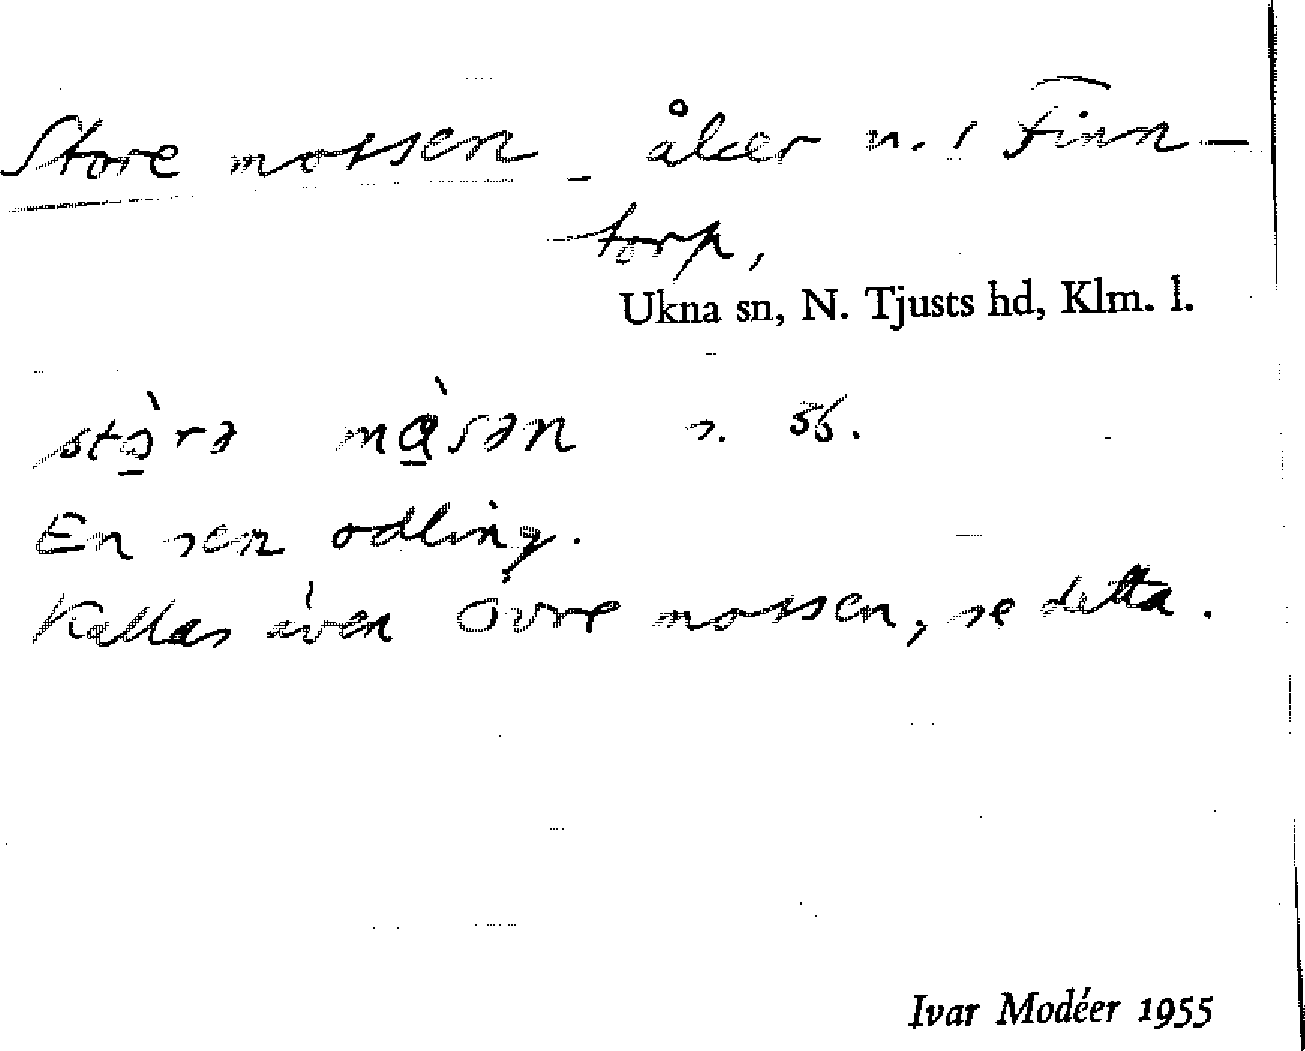 Store mossen _ åker n. i Finn-
torp,
Ukna sn, N. Tjusts hd, Klm. l.
stɔ̀rə mɑ̀sən s. 56.
En sen odling.
Kallas även Övre mossen, se detta.
Ivar Modéer 1955